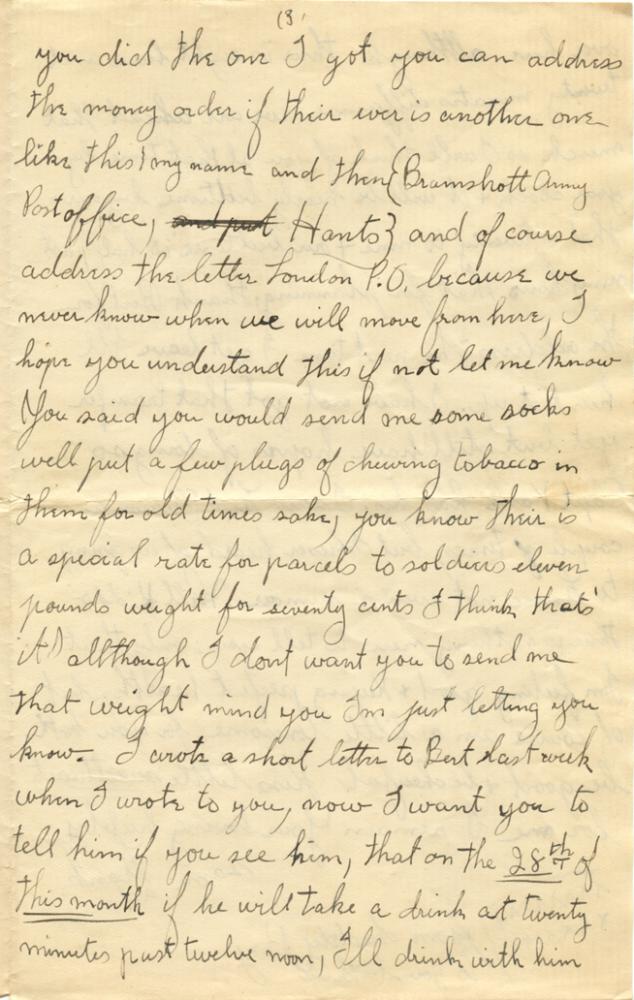 (3)
you did the one I got you can address
the money order if their ever is another one
like this, my name and then {Bramshott Army
Post office, and put Hants} and of course
address the letter London P.O. because we
never know when we will move from here, I
hope you understand this if not let me know
You said you would send me some socks
well put a few plugs of chewing tobacco in
them for old times sake, you know their is
a special rate for parcels to soldiers eleven
pounds weight for seventy cents I think that's
it) although I dont want you to send me
that weight mind you I'm just letting you
know. I wrote a short letter to Bert last week
when I wrote to you, now I want you to
tell him if you see him, that on the 28th of
this month if he will take a drink at twenty
minutes past twelve noon, I'll drink with him